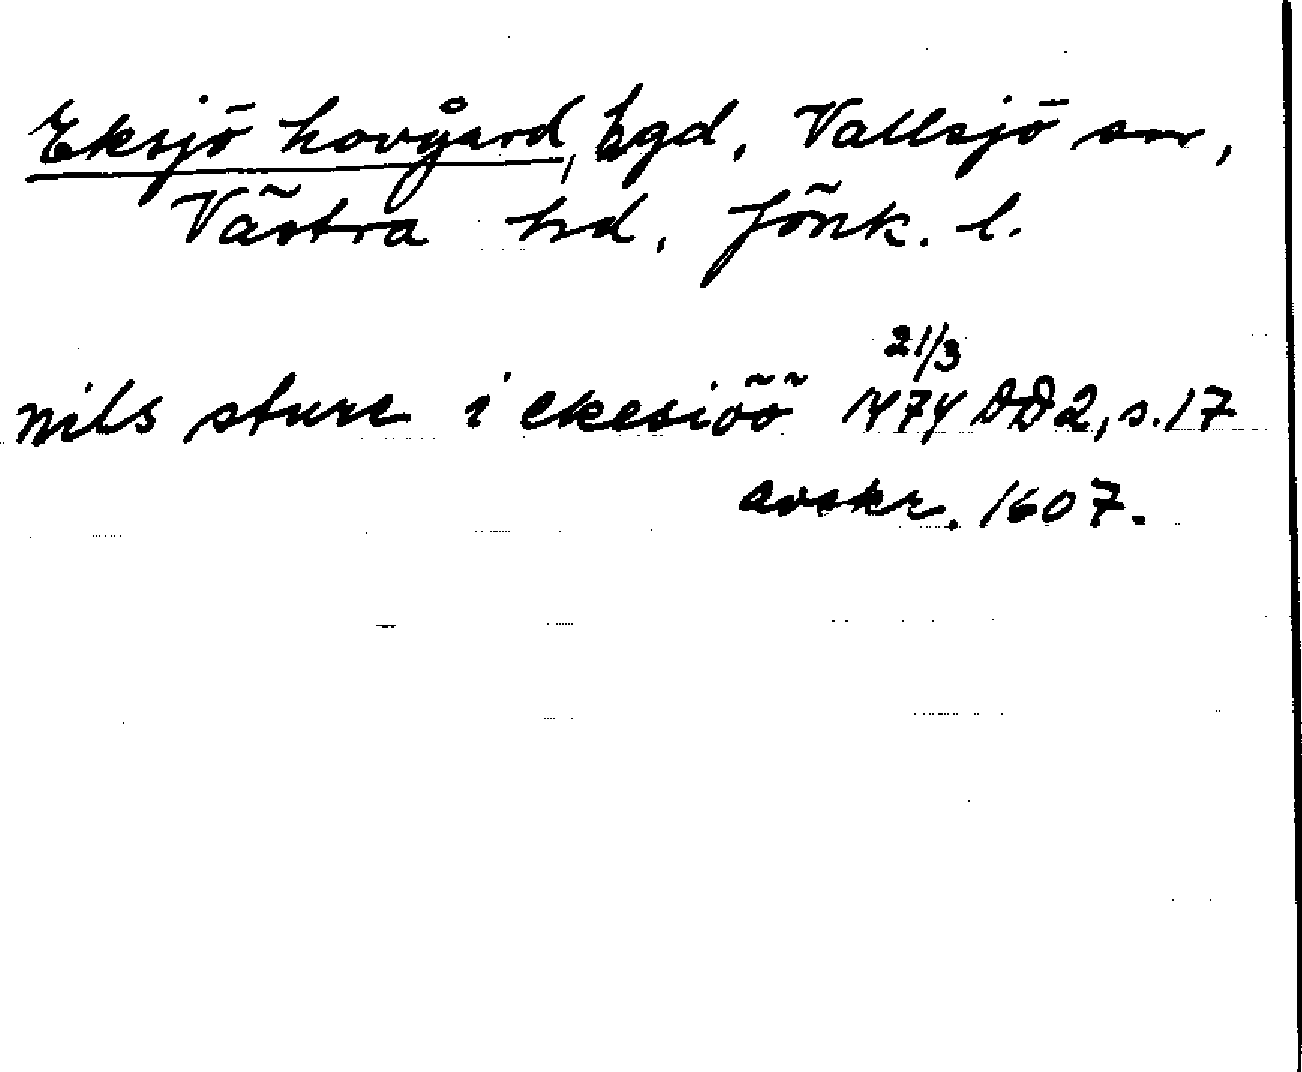 Eksjö hovgård, hgd, Vallsjö sn,
Västra hd, Jönk. l.
21/3
nils sture i ekesiöö 1474 DD2, s. 17
avskr. 1607.